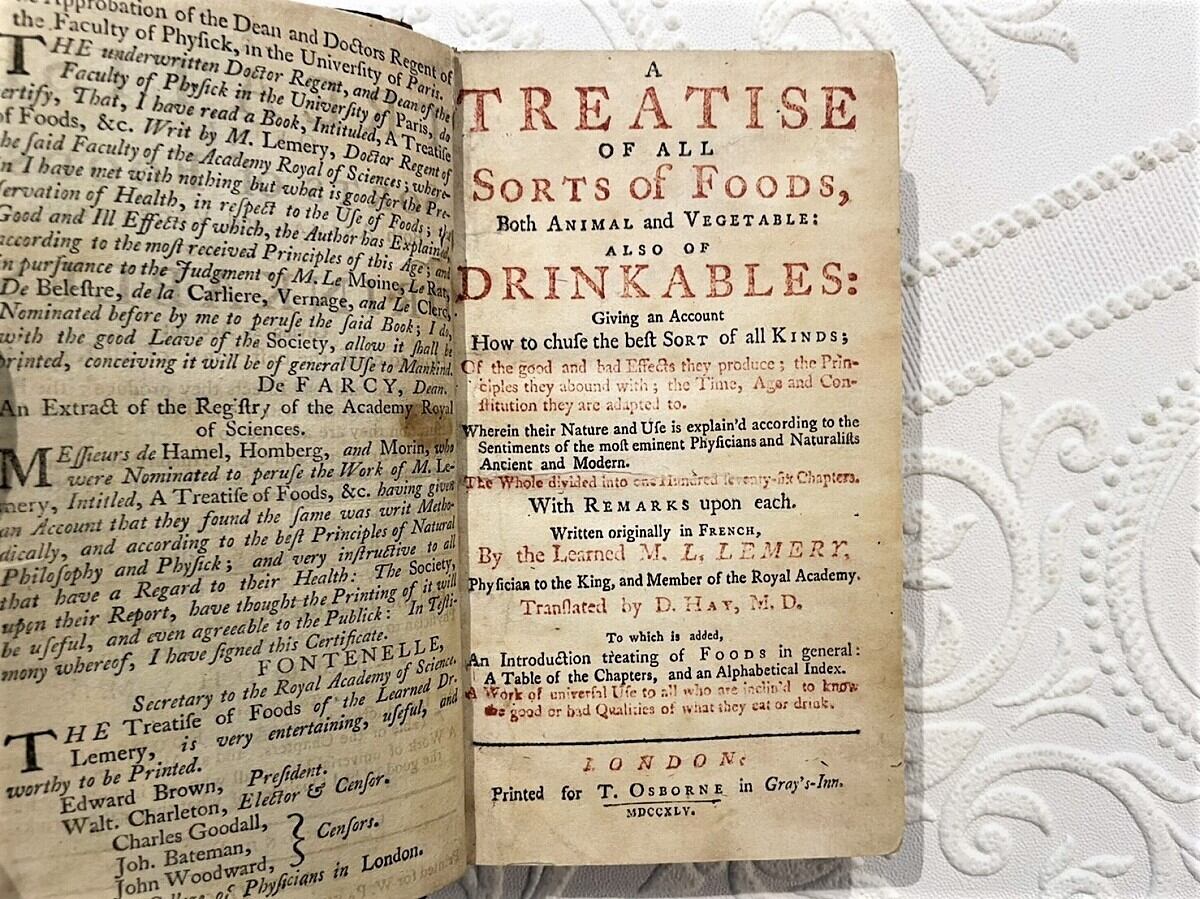 Approbation of the Dean and Doctors Regent of
the Faculty of Phyſick, in the Univerſity of Paris.
THE underwritten Doctor Regent, and Dean of the
Faculty of Phyſick in the Univerſity of Paris, do
ertify, That, I have read a Book, Intituled, A Treatiſe
of Foods, &c. Writ by M. Lemery, Doctor Regent of
he ſaid Faculty of the Academy Royal of Sciences; where-
in I have met with nothing but what is good for the Pre-
ſervation of Health, in reſpect to the Uſe of Foods; the
Good and Ill Effects of which, the Author has Explained,
according to the moſt received Principles of this Age; and
in purſuance to the Judgment of M. Le Moine, Le Rat,
De Beleſtre, de la Carliere, Vernage, and Le Clerc,
Nominated before by me to peruſe the ſaid Book; I do,
with the good Leave of the Society, allow it ſhall be
printed, conceiving it will be of general Uſe to Mankind.
De FARCY, Dean.
An Extract of the Regiſtry of the Academy Royal
of Sciences.
MEſſieurs de Hamel, Homberg, and Morin, who
were Nominated to peruſe the Work of M. Le-
mery, Intitled, A Treatiſe of Foods, &c. having given
an Account that they found the ſame was writ Metho-
dically, and according to the beſt Principles of Natural
Philoſophy and Phyſick; and very inſtructive to all
that have a Regard to their Health: The Society,
upon their Report, have thought the Printing of it will
be uſeful, and even agreeable to the Publick: In Teſti-
mony whereof, I have ſigned this Certificate.
FONTENELLE,
Secretary to the Royal Academy of Science.
THE Treatiſe of Foods of the Learned Dr.
Lemery, is very entertaining, uſeful, and
worthy to be Printed.
Edward Brown, Preſident.
Walt. Charleton, Elector & Cenſor.
Charles Goodall,
Joh. Bateman, } Cenſors.
John Woodward,
College of Phyſicians in London.
A
TREATISE
OF ALL
SORTS of FOODS,
Both ANIMAL and VEGETABLE:
ALSO OF
DRINKABLES:
Giving an Account
How to chuſe the beſt SORT of all KINDS;
Of the good and bad Effects they produce; the Prin-
ciples they abound with; the Time, Age and Con-
ſtitution they are adapted to.
Wherein their Nature and Uſe is explain'd according to the
Sentiments of the moſt eminent Phyſicians and Naturaliſts
Ancient and Modern.
The Whole divided into one Hundred ſeventy-ſix Chapters.
With REMARKS upon each.
Written originally in FRENCH,
By the Learned M. L. LEMERY,
Phyſician to the King, and Member of the Royal Academy.
Tranſlated by D. HAY, M. D.
To which is added,
An Introduction treating of FOODS in general:
A Table of the Chapters, and an Alphabetical Index.
A Work of univerſal Uſe to all who are inclin'd to know
the good or bad Qualities of what they eat or drink.
LONDON:
Printed for T. OSBORNE in Gray's-Inn.
MDCCXLV.